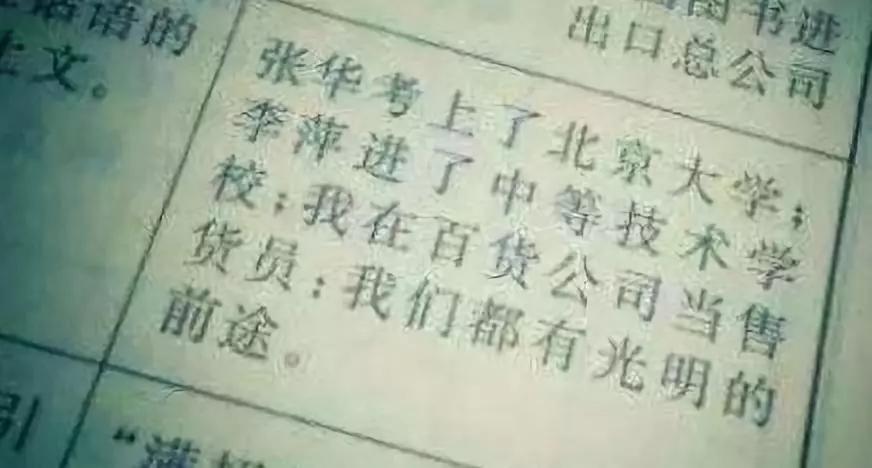 图书进
出口总公司
话语的
上文。
张华考上了北京大学；
李萍进了中等技术学
校；我在百货公司当售
货员：我们都有光明的
前途。
引
“满